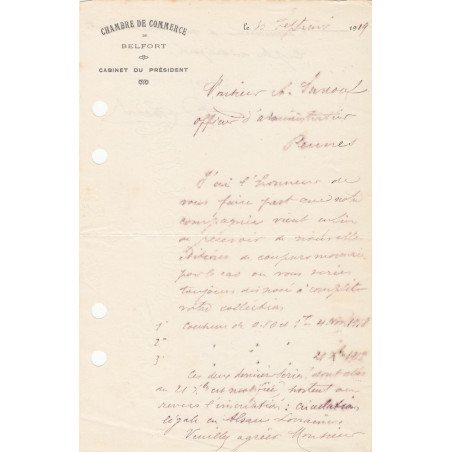 CHAMBRE DE COMMERCE
DE
BELFORT
CABINET DU PRÉSIDENT
Le 1919
Monsieur A.
officier d'administration
Rennes
J'ai l'honneur de
vous faire part que notre
compagnie vient
de recevoir de nouvelle
de coupures
pour le cas ou vous seriez
toujours disposé à compléter
votre collection
1° coupures de 0.50 et 1 -
2° " "
3° " "
Ces deux dernières séries, dont celle
du 21 portent au
revers l'inscription : circulation
légale en Alsace Lorraine
Veuillez agréer Monsieur